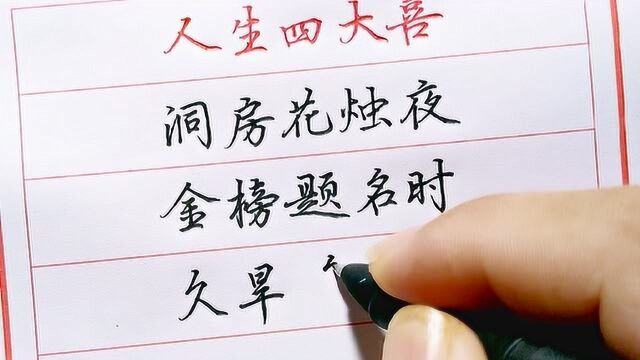 人生四大喜
洞房花烛夜
金榜题名时
久旱